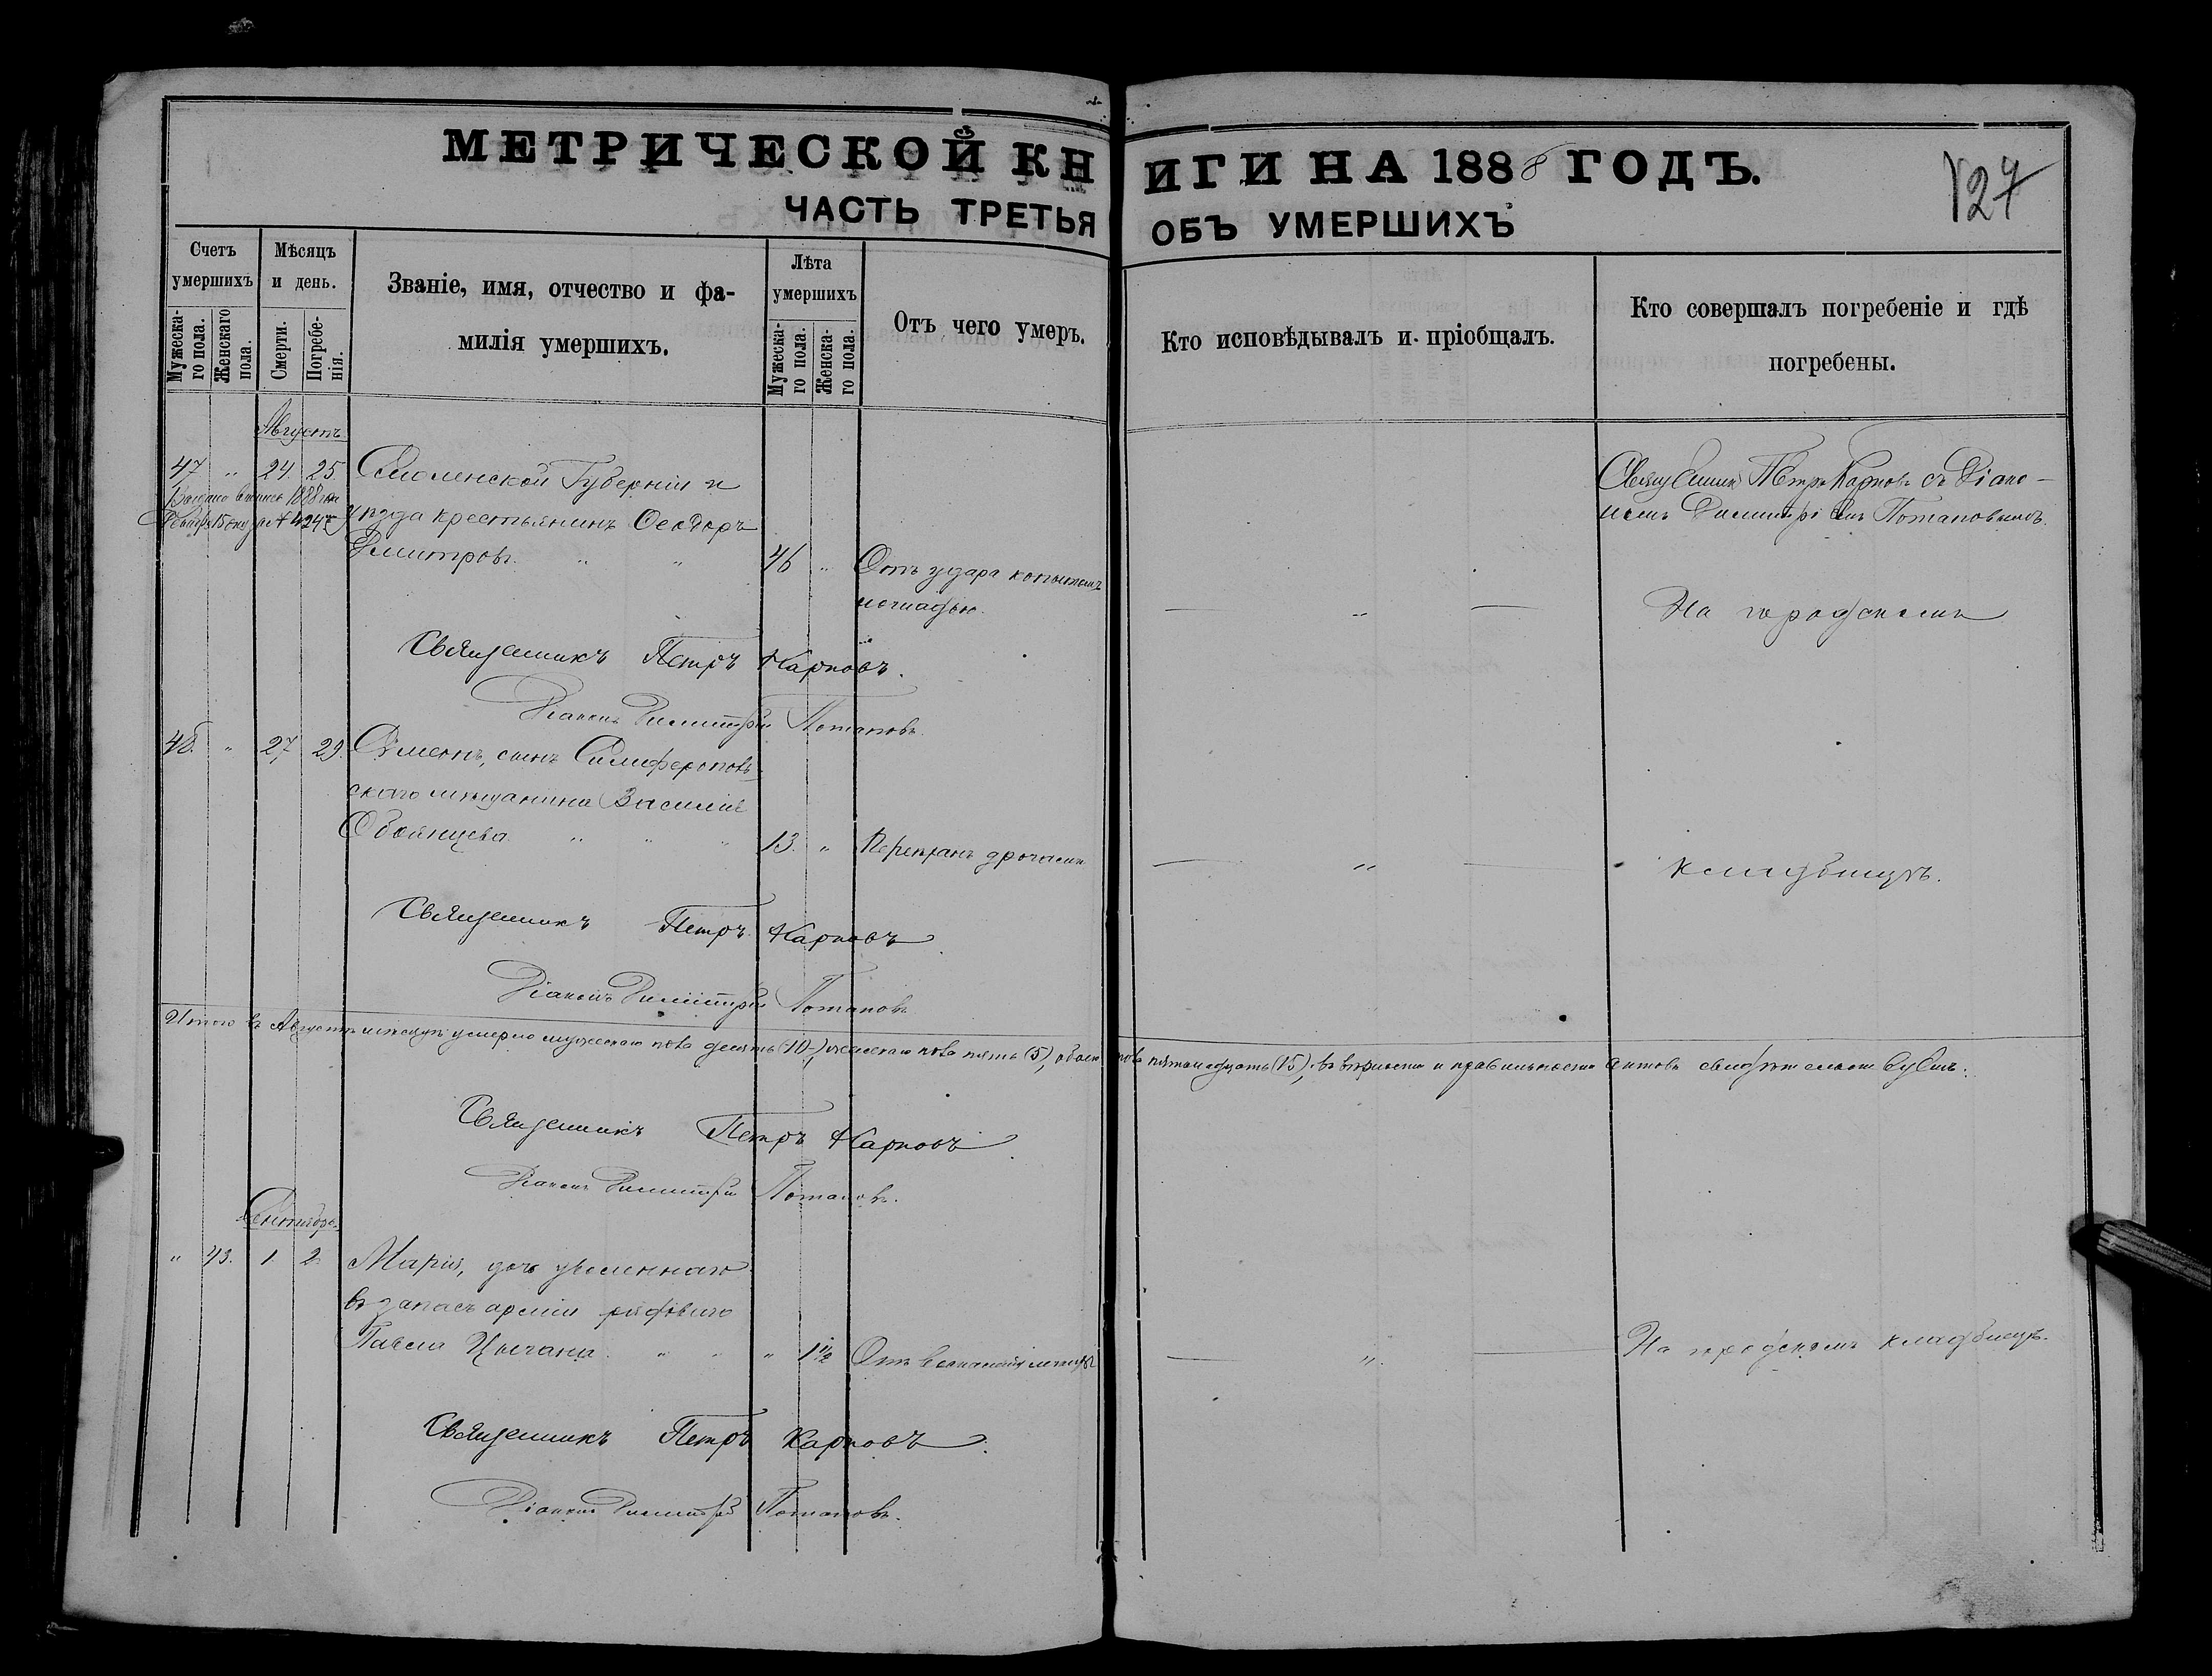 МЕТРИЧЕСКОЙ КНИГИ НА 1888 ГОДЪ.
127
ЧАСТЬ ТРЕТЬЯ ОБЪ УМЕРШИХЪ
Счетъ умершихъ
Мужескаго пола.
Женскаго пола.
Мѣсяцъ и день.
Смерти.
Погребенія.
Званіе, имя, отчество и фамилія умершихъ.
Лѣта умершихъ
Мужескаго пола.
Женскаго пола.
Отъ чего умеръ.
Кто исповѣдывалъ и пріобщалъ.
Кто совершалъ погребеніе и гдѣ погребены.
Августъ
47 " 24. 25. Смоленской Губерніи и
уѣзда крестьянинъ Ѳеодоръ
Димитровъ. " " 46 " Отъ удара копытомъ
лошадью.
1888
Священникъ Петръ Карповъ съ Діако-
номъ Димитріемъ Потаповымъ.
— " — На городскомъ
Священникъ Петръ Карповъ.
Діаконъ Димитрій Потаповъ.
48. " 27 29. Симеонъ, сынъ Симферополь-
скаго мѣщанина Василія
Обоянцева " " " 13. " Переѣханъ дрогами
— " — кладбищѣ.
Священникъ Петръ Карповъ.
Діаконъ Димитрій Потаповъ
Итого въ Августѣ мѣсяцѣ умерло мужескаго пола десять (10), женскаго пола пять (5), обоего пола пятнадцать (15); въ вѣрности и правильности актовъ свидѣтельствуемъ:
Священникъ Петръ Карповъ.
Діаконъ Димитрій Потаповъ.
Сентябрь
" 43. 1. 2. Марія, дочь уволеннаго
въ запасъ арміи рядоваго
Павла Цыгана. " " " 1 1/2 Отъ воспаленія
— " — На городскомъ кладбищѣ.
Священникъ Петръ Карповъ.
Діаконъ Димитрій Потаповъ.